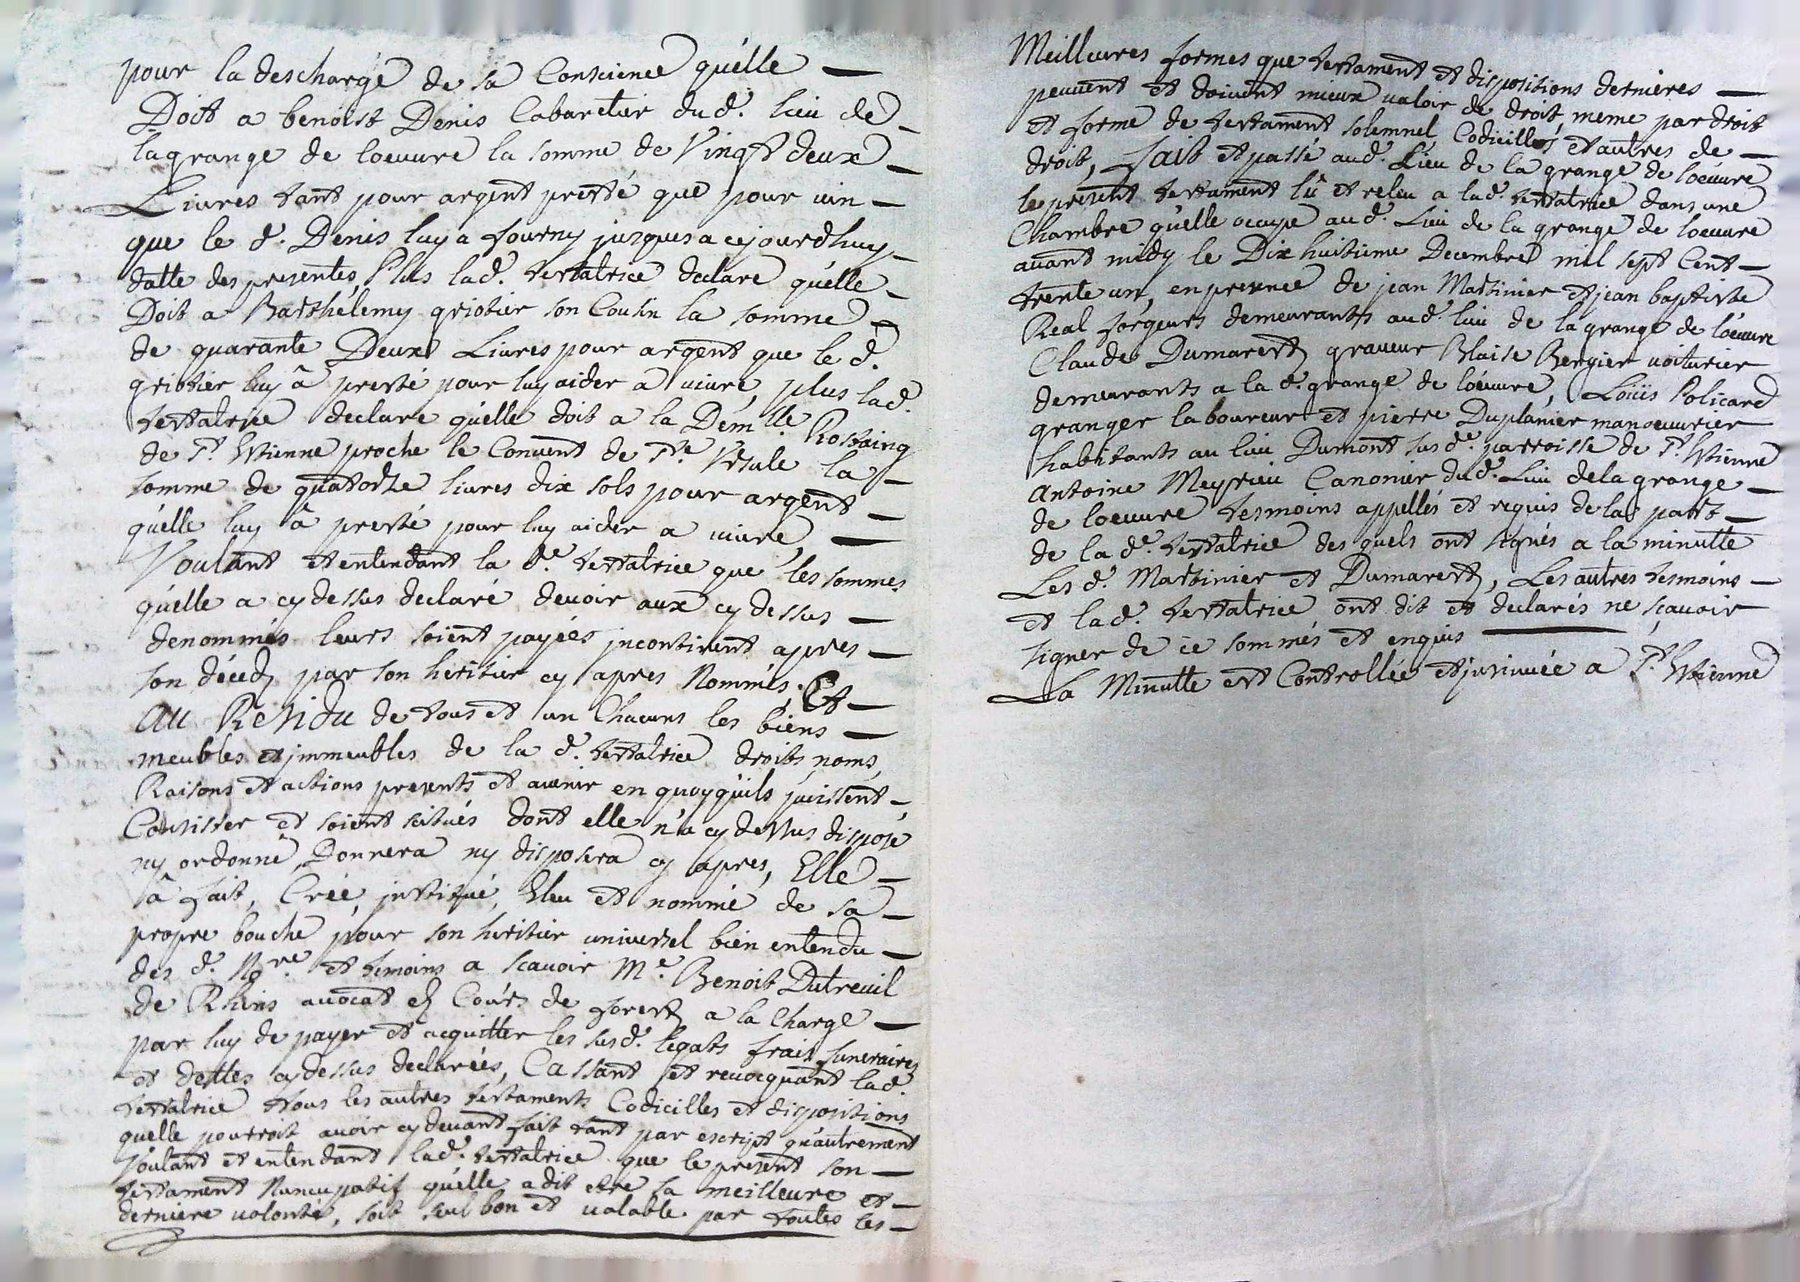 pour la descharge de sa Conscience qu'elle
Doit a benoist Denis Cabaretier dud. lieu de
lagrange de loeuvre la somme de Vingt deux
Livres tant pour argent presté que pour vin
que le d. Denis luy a fourny jusques a cejourdhuy
datte des presentes, Plus lad. testatrice declare qu'elle
Doit a Barthelemy griotier son Cousin la somme
de quarante Deux Livres pour argent que le d.
griotier luy â presté pour luy aider a vivre, plus lad.
testatrice declare qu'elle doit a la Demlle Rostaing
de St. Etienne proche le Convent de Ste Ursule la
somme de quatorze livres dix sols pour argent
qu'elle luy â presté pour luy aider a vivre
Voulant et entendant la de. testatrice que les sommes
qu'elle a cy dessus declaré devoir aux cy dessus
denommés leurs soient payées jncontinent apres
son décéd par son heritier cy apres Nommés. Et
au Residu de tous et un Chacuns les biens
meubles et jmmeubles de la d. testatrice droits noms
Raisons et actions presents et avenir en quoyquils puissent
Consister et soient scitués dont elle n'a cy dessus disposé
ny ordonné, Donnera ny disposera cy apres, Elle
â fait, Créé, jnstitué, Eleu et nommé de sa
propre bouche pour son heritier universel bien entendu
des d. Nre. et temoins a scavoir Me. Benoit Dutreuil
de Rhins avocat es Cours de forest a la Charge
par luy de payer et acquitter les susd. legats frais funeraires
et dettes cy dessus declarées, Cassant et revocquant lad.
testatrice tous les autres testaments Codicilles et dispositions
quelle pourroit avoir cy devant fait tant par escript qu'autrement
Voulant et entendant lad. testatrice que le present son
testament Nuncupatif qu'elle a dit etre sa meilleure et
derniere volonté, soit seul bon et valable par toutes les
Meilleures formes que testament et dispositions dernieres
peuvent et doivent mieux valoir de droit, meme par droit
et forme de testament solemnel Codicilles et autres de
droit, fait et passé aud. Lieu de la grange de loeuvre
le present testament lû et releu a lad. testatrice dans une
Chambre qu'elle occupe aud. Lieu de la grange de loeuvre
avant midy le Dix huitieme Decembre mil sept Cent
trente un, en presence de jean Martinier et jean baptiste
Real forgeurs demeurants aud. lieu de la grange de lóeuvre
Claude Dumarest graveur Blaise Bergier voiturier
demeurants a la d. grange de lóeuvre, Loüis Policard
granger laboureur et pierre Duplanier manoeuvrier
habitants au lieu Dumont susde. parroisse de St. Etienne
antoine Meyrieu Canonier dud. Lieu delagrange
de loeuvre tesmoins appellés et requis de la part
de la de. testatrice des quels ont signés a la minutte
Les d. Martinier et Dumarest, Les autres tesmoins
et lad. testatrice ont dit et declarés ne scavoir
signer de ce sommés et enquis
La Minutte est Controllée et jnsinuée a St. Etienne